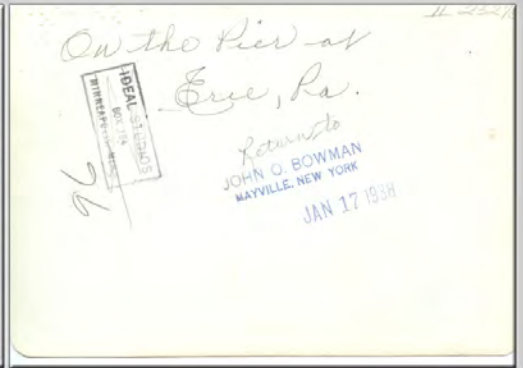 On the Pier at
Erie, Pa.
IDEAL STUDIOS
BOX 
MINNEAPOLIS, 
Return to
JOHN O. BOWMAN
MAYVILLE, NEW YORK
JAN 17 1938